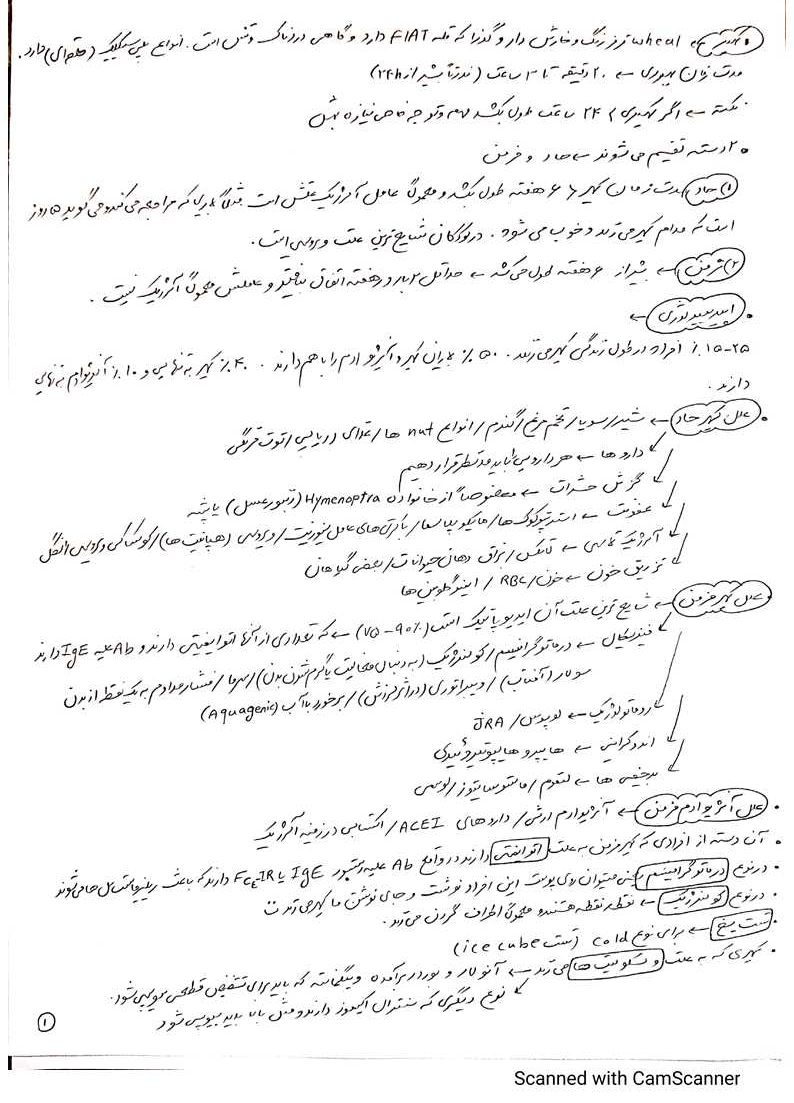 • کهیر ← wheal قرمز رنگ و خارش دار و گذرا که قله FLAT دارد و گاهی دردناک و تنش است. انواع پلی سیکلیک (حلقه ای) دارد.
مدت زمان بهبودی ← ۲۰ دقیقه تا ۳ ساعت (ندرتاً بیشتر از ۲۴h)
نکته ← اگر کهیری ۲۴ ساعت طول بکشد مهم و توجه خاص نیازه بهش
• ۲ دسته تقسیم می شوند ← حاد و مزمن
۱) حاد ← مدت زمان کهیر ۶ هفته طول بکشد و معمولاً عامل آلرژیک علتش است مثلاً بیماری که مراجعه می کند و می گوید ۵ روز
است که مدام کهیر می زند و خوب می شود. در کودکان شایع ترین علت ویروسی است.
۲) مزمن ← بیشتر از ۶ هفته طول می کشد ← حداقل ۲ بار در هفته اتفاق بیافتد و عاملش معمولاً آلرژیک نیست.
• اپیدمیولوژی ←
۱۵-۲۵٪ از افراد در طول زندگی کهیر می زنند. ۵۰٪ بیماران کهیر و آنژیوادم را با هم دارند. ۴۰٪ کهیر به تنهایی و ۱۰٪ آنژیوادم به تنهایی
دارند.
• علل کهیر حاد ← شیر/سویا/تخم مرغ/گندم/انواع nut ها/غذای دریایی/توت فرنگی
داروها ← هر دارویی را باید مدنظر قرار دهیم
گزش حشرات ← مخصوصاً از خانواده Hymenoptra (زنبور عسل) یا پشه
عفونت ← استرپتوکوک ها/مایکوپلاسما/باکتری های عامل سینوزیت/ویروسی (هپاتیت ها)/کوکساکی ویروس/انگل
آلرژیک تماسی ← لاتکس/بزاق دهان حیوانات/بعضی گیاهان
تزریق خون ← خون/RBC/ایمنوگلوبین ها
• علل کهیر مزمن ← شایع ترین علت آن ایدیوپاتیک است (۷۵-۹۰٪) ← که تعدادی از آنها اتوایمنیتی دارند و Ab علیه IgE دارند
فیزیکال ← درماتوگرافیسم/کولینرژیک (به دنبال فعالیت یا گرم شدن بدن)/سرما/فشار مداوم به یک نقطه از بدن
سولار (آفتاب)/ویبراتوری (در اثر لرزش)/برخورد با آب (Aquagenic)
روماتولوژیک ← لوپوس/JRA
اندوکراینی ← هایپر و هایپوتیروئیدی
بدخیمی ها ← لنفوم/ماستوسایتوز/لوسمی
• علل آنژیوادم مزمن ← آنژیوادم ارثی/داروهای ACEI/اکتسابی در زمینه آلرژیک
• آن دسته از افرادی که کهیر مزمن به علت اتوایمنیتی دارند در واقع Ab علیه رسپتور IgE یا FcεIR دارند که باعث ریلیز ماست سل ها می شوند
• در نوع درماتوگرافیسم یعنی میتوان روی پوست این افراد نوشت و جای نوشتن ما کهیر می زند
• در نوع کولینرژیک ← نقطه نقطه هستند معمولاً اطراف گردن می زند.
• تست یخ ← برای نوع cold (تست ice cube)
• کهیری که به علت وسکولیت ها می زند ← آنولار و بوردر برآمده که باید برای تشخیص قطعی بیوپسی شود.
نوع دیگری که سنترال اکیموز دارند و مثل بالا باید بیوپسی شود
۱
Scanned with CamScanner